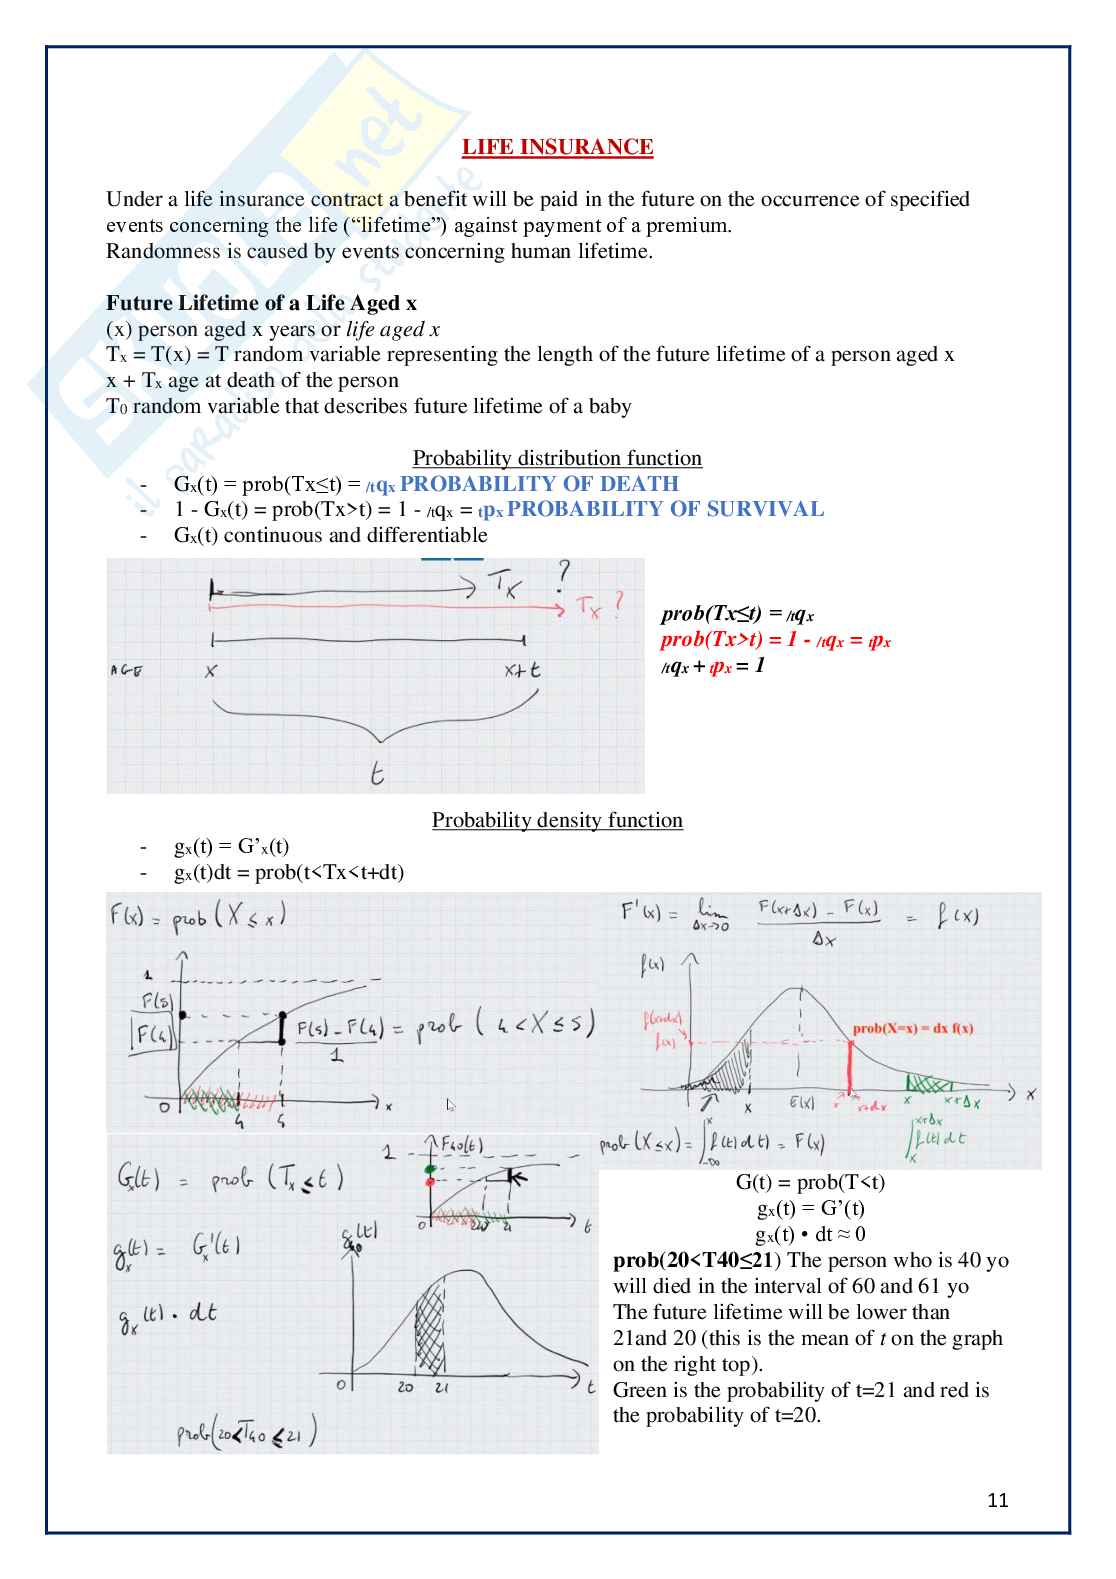 LIFE INSURANCE
Under a life insurance contract a benefit will be paid in the future on the occurrence of specified
events concerning the life (“lifetime”) against payment of a premium.
Randomness is caused by events concerning human lifetime.
Future Lifetime of a Life Aged x
(x) person aged x years or life aged x
Tx = T(x) = T random variable representing the length of the future lifetime of a person aged x
x + Tx age at death of the person
T0 random variable that describes future lifetime of a baby
Probability distribution function
- Gx(t) = prob(Tx≤t) = /tqx PROBABILITY OF DEATH
- 1 - Gx(t) = prob(Tx>t) = 1 - /tqx = tpx PROBABILITY OF SURVIVAL
- Gx(t) continuous and differentiable
Tx ?
Tx ?
AGE x x+t
t
prob(Tx≤t) = /tqx
prob(Tx>t) = 1 - /tqx = tpx
/tqx + tpx = 1
Probability density function
- gx(t) = G’x(t)
- gx(t)dt = prob(t<Tx<t+dt)
F(x) = prob (X ≤ x)
1
F(5)
F(4)
F(5) - F(4) = prob (4 < X ≤ 5)
1
0 4 5 x
F'(x) = lim F(x+Δx) - F(x) = f(x)
Δx→0 Δx
f(x)
f(x+dx)
f(x)
prob(X=x) = dx f(x)
x E(x) x x+dx x x+Δx x
prob(X≤x) = ∫ f(t) dt) = F(x)
x
-∞
x+Δx
∫ f(t) dt
x
Gx(t) = prob (Tx ≤ t)
gx(t) = Gx'(t)
gx(t) • dt
1 F40(t)
0 20 21 t
g40(t)
0 20 21 t
prob(20<T40≤21)
G(t) = prob(T<t)
gx(t) = G’(t)
gx(t) • dt ≈ 0
prob(20<T40≤21) The person who is 40 yo
will died in the interval of 60 and 61 yo
The future lifetime will be lower than
21and 20 (this is the mean of t on the graph
on the right top).
Green is the probability of t=21 and red is
the probability of t=20.
11
SKUOLA.net
il paradiso dello studente